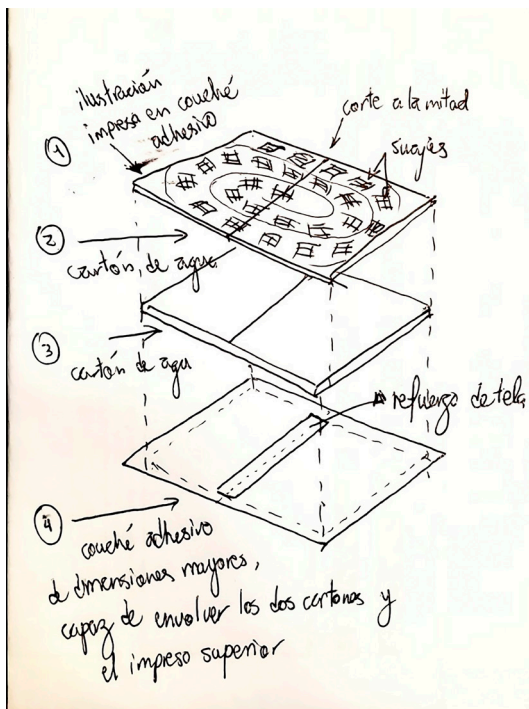 ilustración
impresa en couché
adhesivo
corte a la mitad
suajes
1
2
cartón de agua
3
cartón de agu
refuerzo de tela
4
couché adhesivo
de dimensiones mayores,
capaz de envolver los dos cartones y
el impreso superior